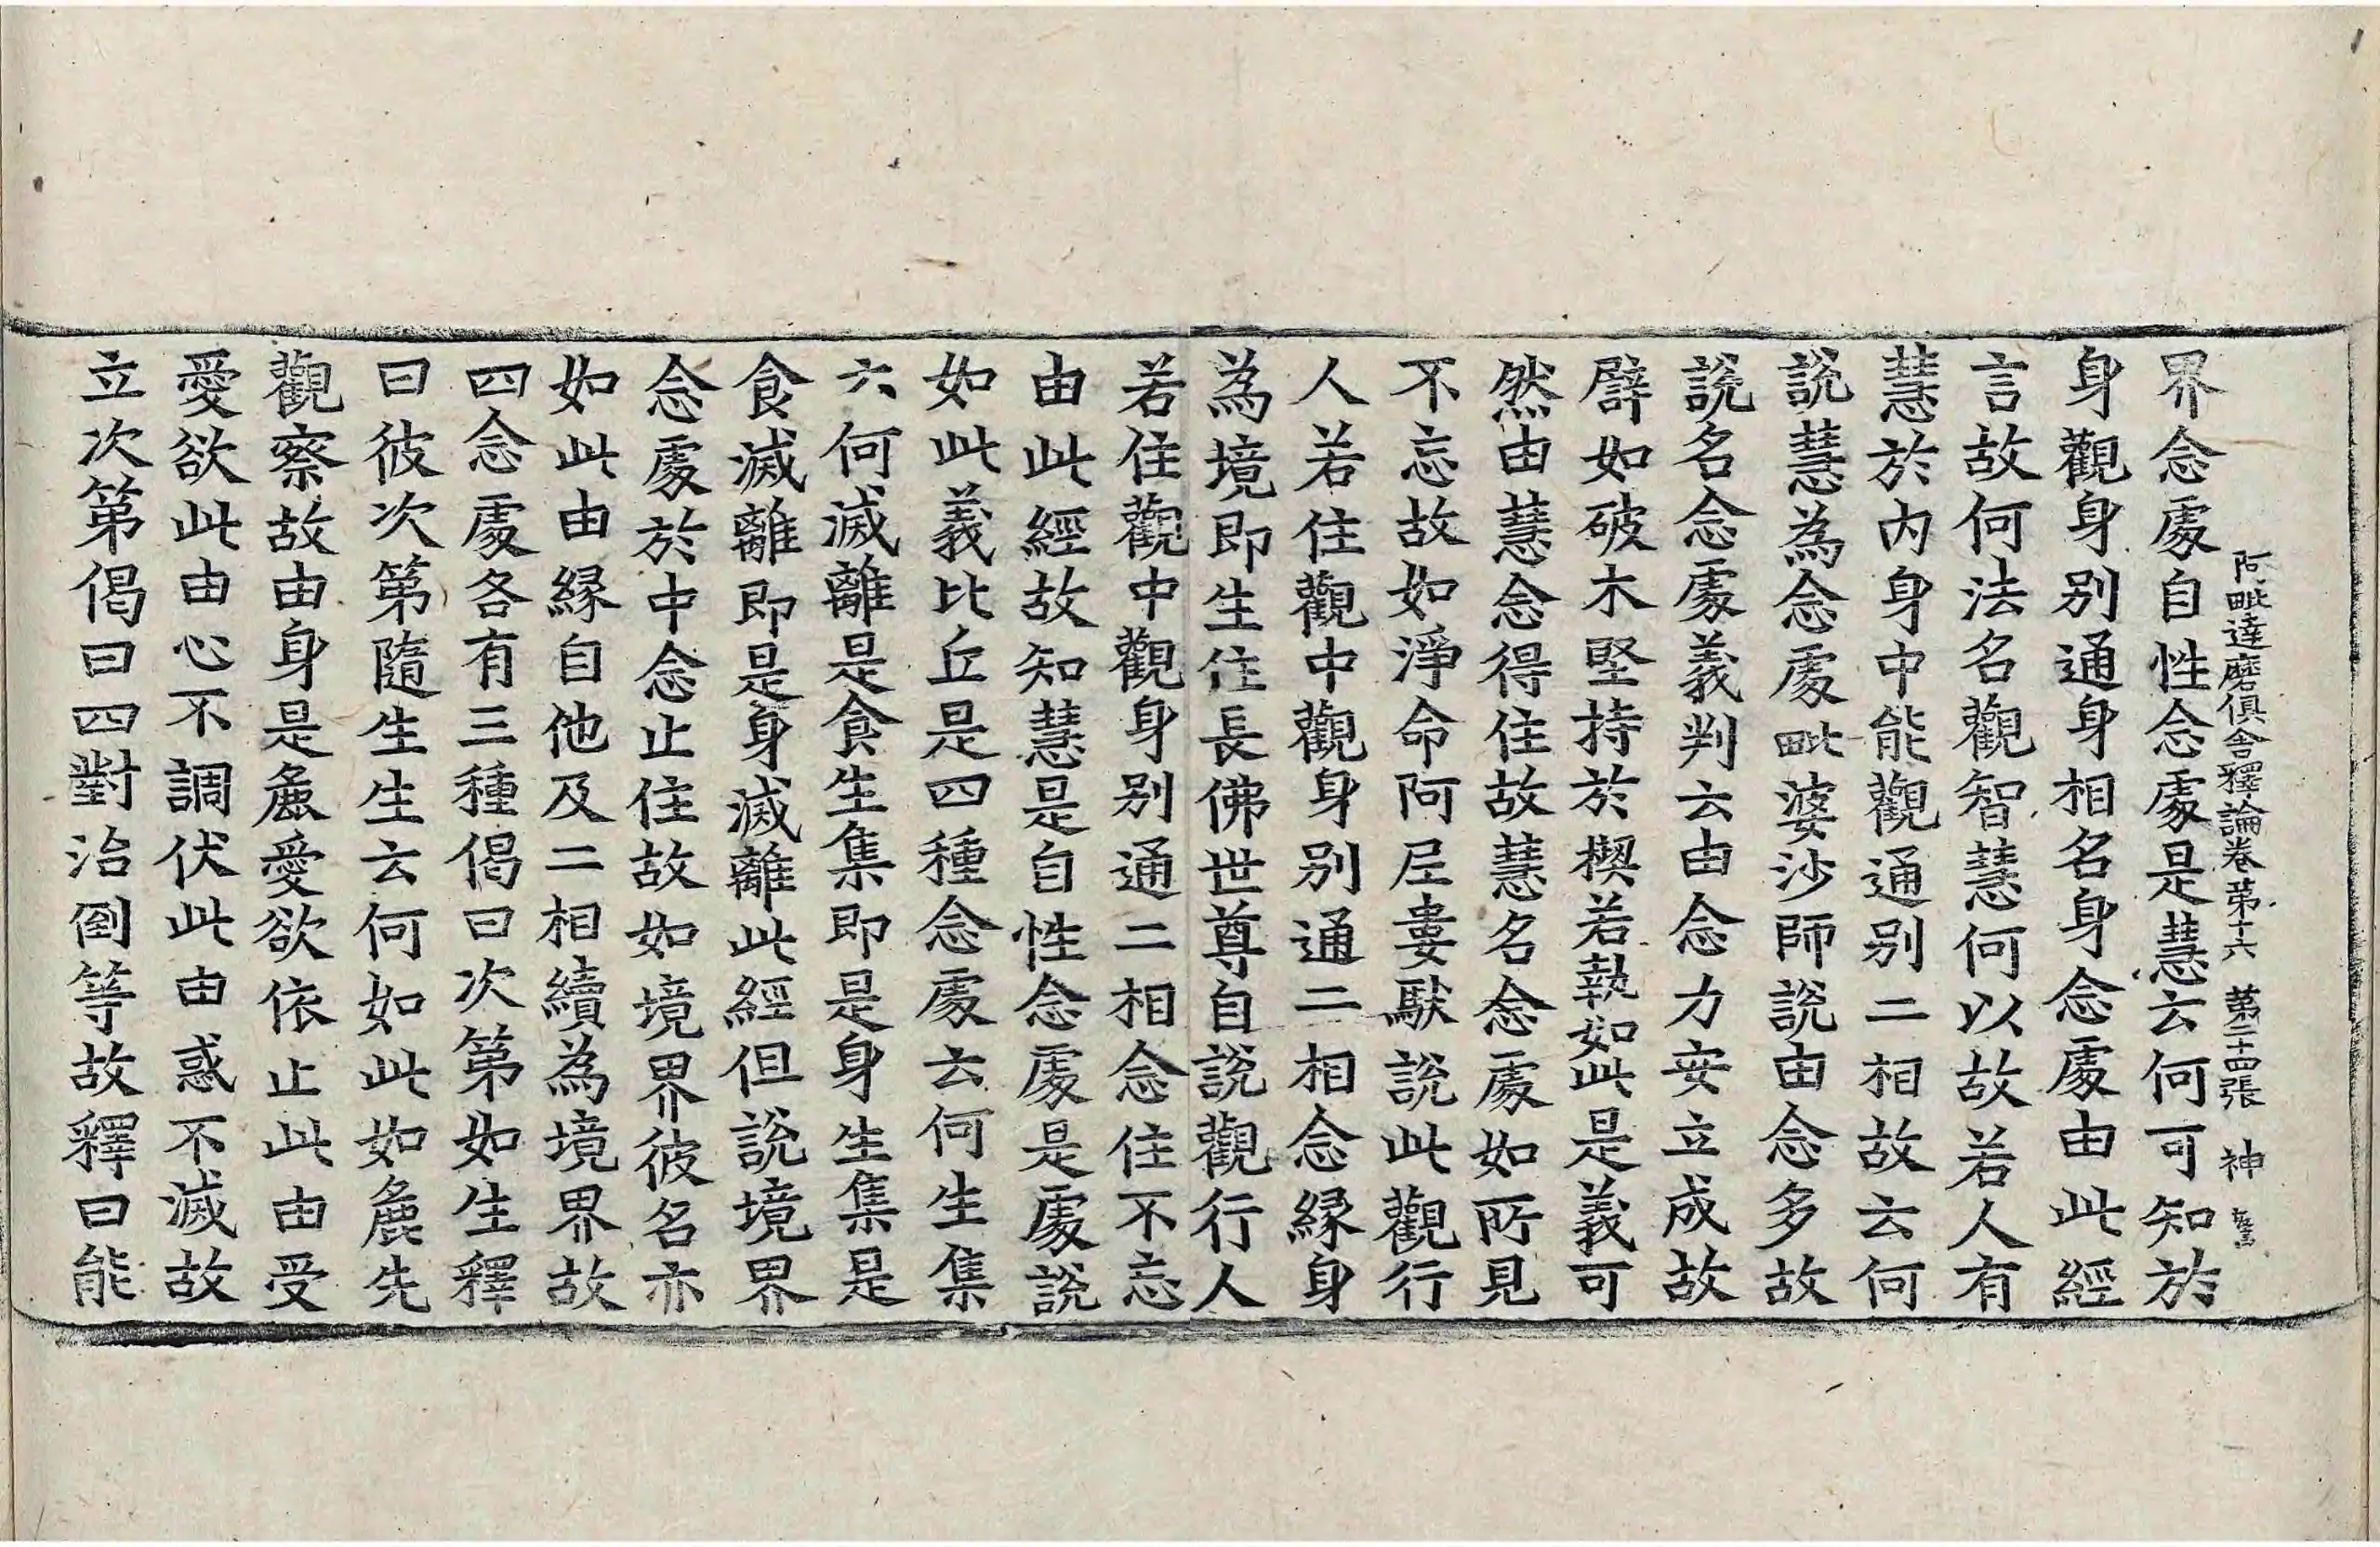 阿毗達磨俱舍釋論卷第十六 第二十四張 神
界念處自性念處是慧云何可知於
身觀身別通身相名身念處由此經
言故何法名觀智慧何以故若人有
慧於內身中能觀通別二相故云何
說慧為念處毗婆沙師說由念多故
說名念處義判云由念力安立成故
譬如破木堅持於楔若執如此是義可
然由慧念得住故慧名念處如所見
不忘故如淨命阿尼婁馱說此觀行
人若住觀中觀身別通二相念緣身
為境即生住長佛世尊自說觀行人
若住觀中觀身別通二相念住不忘
由此經故知慧是自性念處是處說
如此義比丘是四種念處云何生集
六何滅離是食生集即是身生集是
食滅離即是身滅離此經但說境界
念處於中念止住故如境界彼名亦
如此由緣自他及二相續為境界故
四念處各有三種偈曰次第如生釋
曰彼次第隨生生云何如此如麁先
觀察故由身是麁愛欲依止此由受
愛欲此由心不調伏此由惑不滅故
立次第偈曰四對治倒等故釋曰能